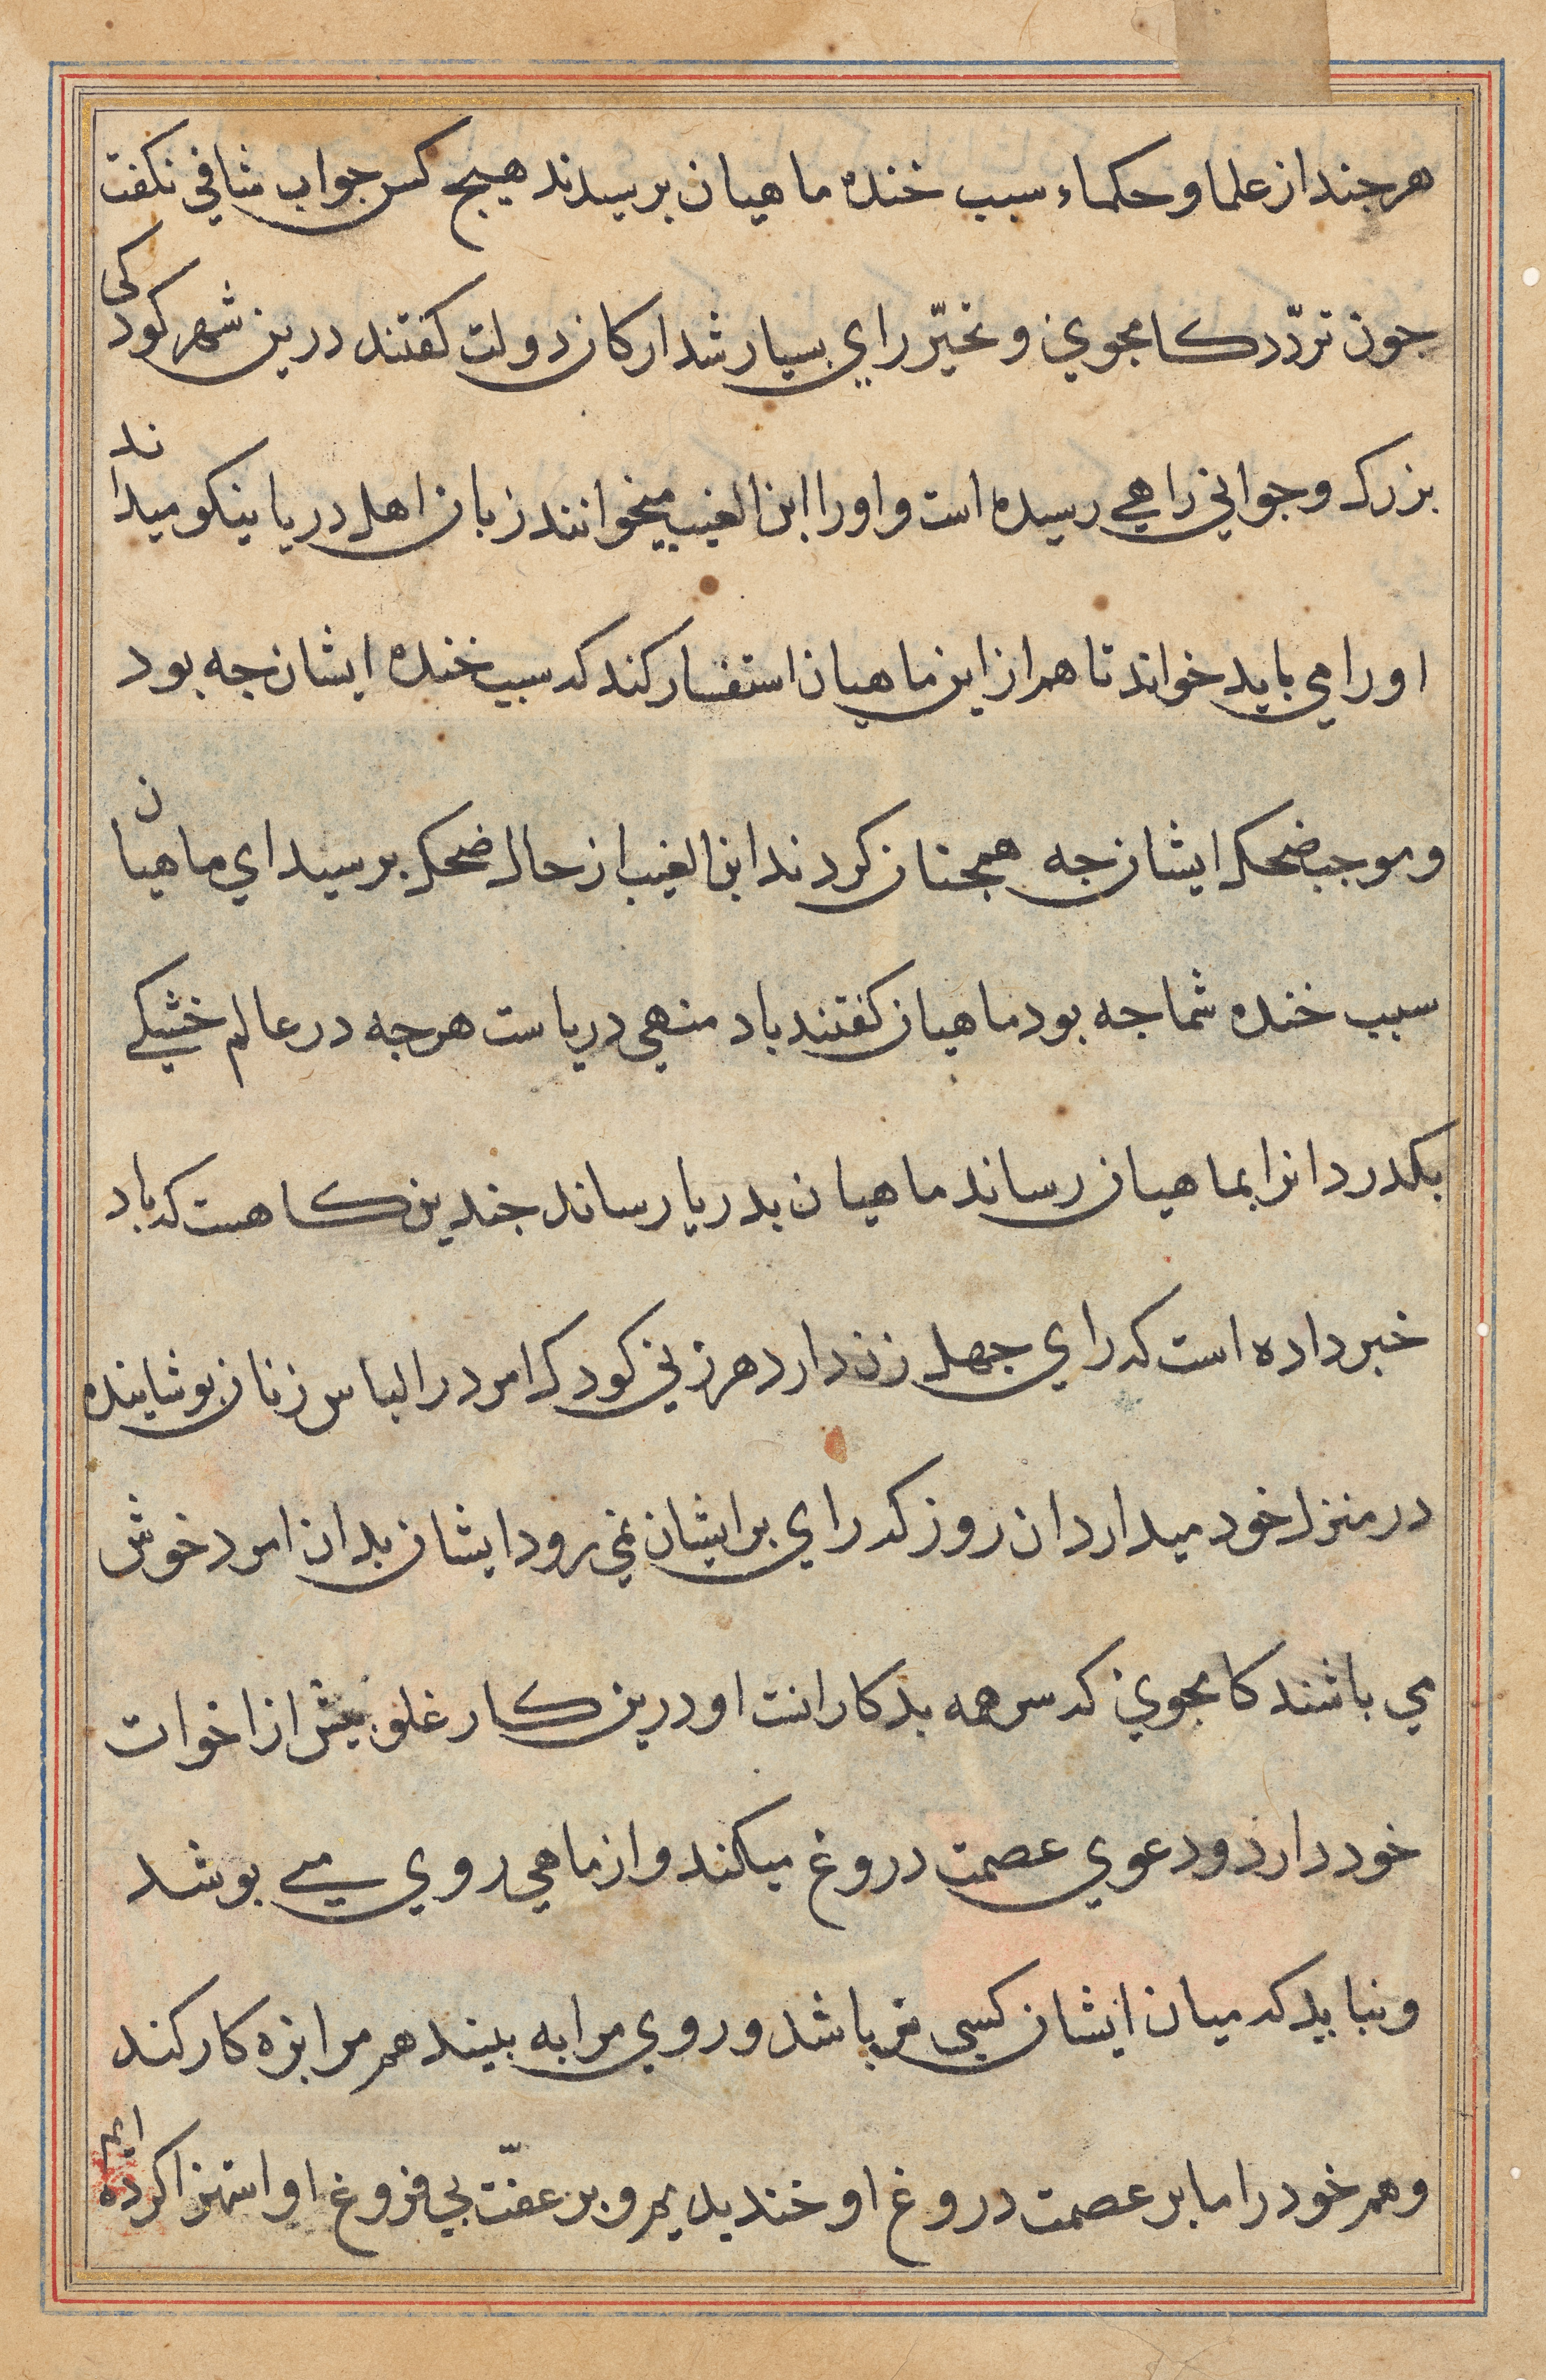 هر جند از علما و حکماء سبب خنده ماهیان برسیدند هیج کس جواب شافی نکفت
جون تردّد کامجوی و تحیّر رای بسیار شد ارکان دولت کفتند درین شهر کودکی
بزرک و جوانی راهی رسیده است و او را ابن الغیب میخوانند زبان اهل دریا نیکو میداند
او را می باید خواند تا هم از این ماهیان استفسار کند که سبب خنده ایشان جه بود
و موجب ضحک ایشان جه همجنان کردند ابن الغیب از حال ضحک برسید ای ماهیان
سبب خنده شما جه بود ماهیان کفتند باد منهی دریاست هرجه در عالم خشکی
بکدرد انرا بماهیان رساند ماهیان بدریا رساند جندین کاهست که باد
خبر داده است که رای جهل زن دارد هر زنی کودک امرد را لباس زنان بوشانیده
در منزل خود میدارد ان روز که رای بر ایشان نمی رود ایشان بدان امرد خوش
می باشند کامجوی که سر همه بدکارانست او درین کار غلو بیش از اخوات
خود دارد و دعوی عصمت دروغ میکند و از ماهی روی می بوشد
و نباید که میان ایشان کسی نر باشد و روی مرا به بیند هم مرا بزه کار کند
و هم خود را ما بر عصمت دروغ او خندیدیم و بر عفّت بی فروغ او استهزا کرده ایم